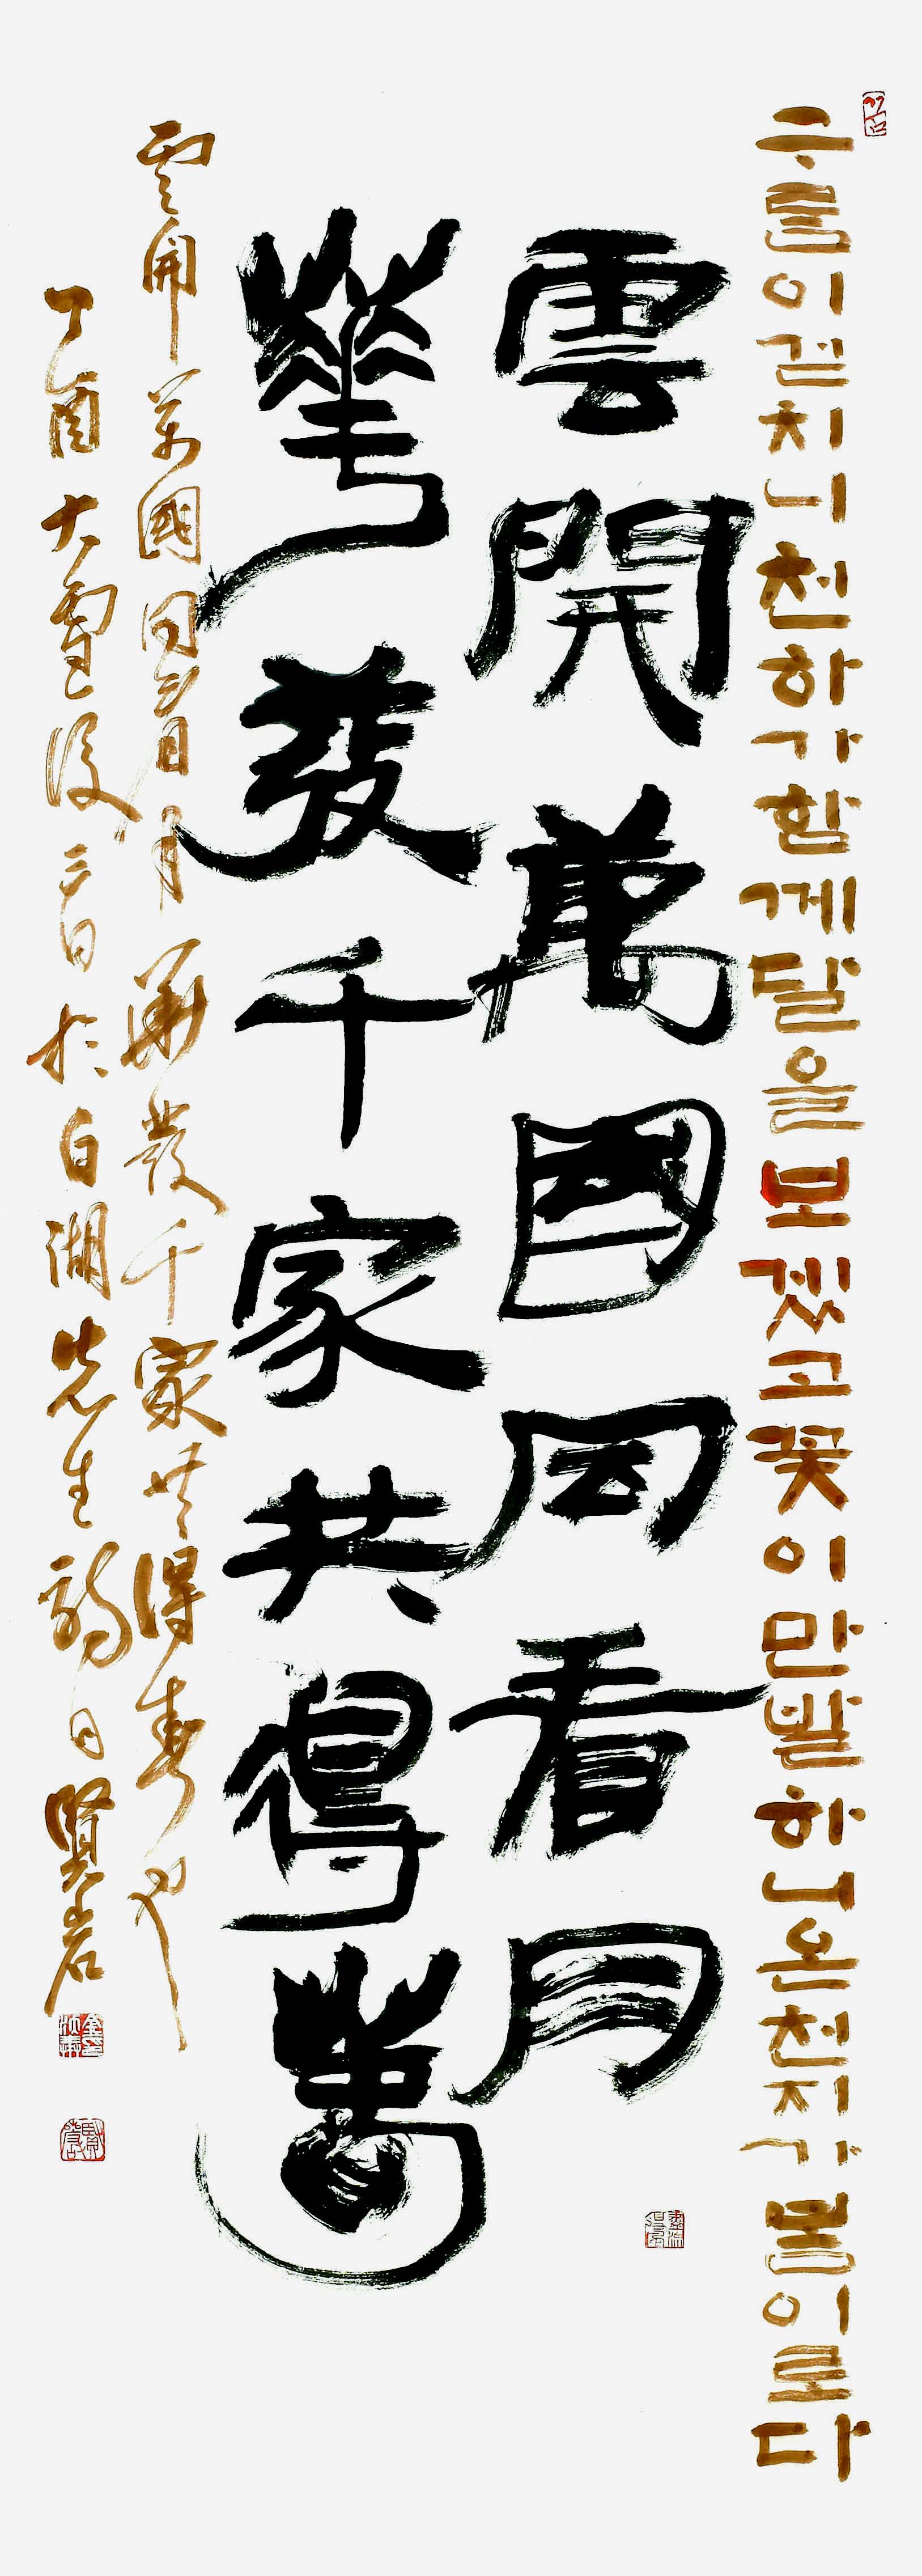 구름이걷치니천하가함께달을보겠고꽃이만발하니온천지가봄이로다
雲開萬國同看月
華發千家共得春
雲開萬國同看月華發千家共得春
丁酉大雪後三日於白湖先生 日賢岩